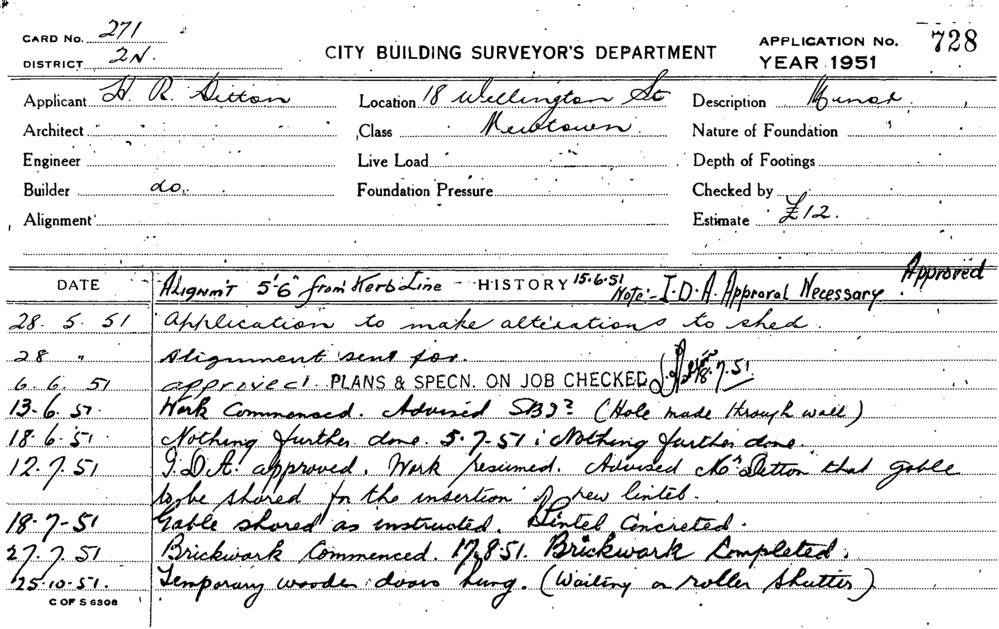 CARD No. 271
DISTRICT 2N.
CITY BUILDING SURVEYOR'S DEPARTMENT
APPLICATION No. 728
YEAR 1951
Applicant H. R. Ditton Location 18 Wellington St Description Minor
Architect Class Newtown. Nature of Foundation
Engineer Live Load Depth of Footings
Builder do. Foundation Pressure Checked by
Alignment Estimate £12.
DATE Alignm't 5'-6" from Kerb Line - HISTORY 15.6.51 Note:- I.D.A. Approval Necessary. Approved
28. 5. 51 Application to make alterations to shed.
28 " Alignment sent for.
6. 6. 51 approved. PLANS & SPECN. ON JOB CHECKED 18.7.51
13.6.51. Work Commenced. Advised (Hole made through wall)
18.6.51. Nothing further done. 5.7.51: Nothing further done.
12.7.51 I.D.A. approved. Work resumed. Advised Mr Ditton that gable
to be shored for the insertion of new lintel.
18.7-51 Gable shored as instructed. Lintel Concreted.
27.7.51 Brickwork Commenced. 17.8.51. Brickwork Completed.
25.10.51. Temporary wooden doors hung. (Waiting on roller shutter)
C OF S 6308